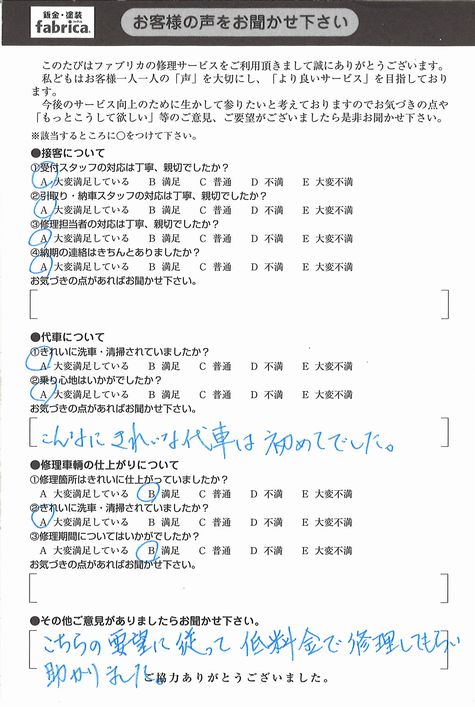 鈑金・塗装
fabrica.
お客様の声をお聞かせ下さい
このたびはファブリカの修理サービスをご利用頂きまして誠にありがとうございます。
私どもはお客様一人一人の「声」を大切にし、「より良いサービス」を目指しており
ます。
今後のサービス向上のために生かして参りたいと考えておりますのでお気づきの点や
「もっとこうして欲しい」等のご意見、ご要望がございましたら是非お聞かせ下さい。
※該当するところに○をつけて下さい。
●接客について
①受付スタッフの対応は丁寧、親切でしたか？
A 大変満足している B 満足 C 普通 D 不満 E 大変不満
②引取り・納車スタッフの対応は丁寧、親切でしたか？
A 大変満足している B 満足 C 普通 D 不満 E 大変不満
③修理担当者の対応は丁寧、親切でしたか？
A 大変満足している B 満足 C 普通 D 不満 E 大変不満
④納期の連絡はきちんとありましたか？
A 大変満足している B 満足 C 普通 D 不満 E 大変不満
お気づきの点があればお聞かせ下さい。
●代車について
①きれいに洗車・清掃されていましたか？
A 大変満足している B 満足 C 普通 D 不満 E 大変不満
②乗り心地はいかがでしたか？
A 大変満足している B 満足 C 普通 D 不満 E 大変不満
お気づきの点があればお聞かせ下さい。
こんなにきれいな代車は初めてでした。
●修理車輌の仕上がりについて
①修理箇所はきれいに仕上がっていましたか？
A 大変満足している B 満足 C 普通 D 不満 E 大変不満
②きれいに洗車・清掃されていましたか？
A 大変満足している B 満足 C 普通 D 不満 E 大変不満
③修理期間についてはいかがでしたか？
A 大変満足している B 満足 C 普通 D 不満 E 大変不満
お気づきの点があればお聞かせ下さい。
●その他ご意見がありましたらお聞かせ下さい。
こちらの要望に従って低料金で修理してもらい
助かりました。
ご協力ありがとうございました。